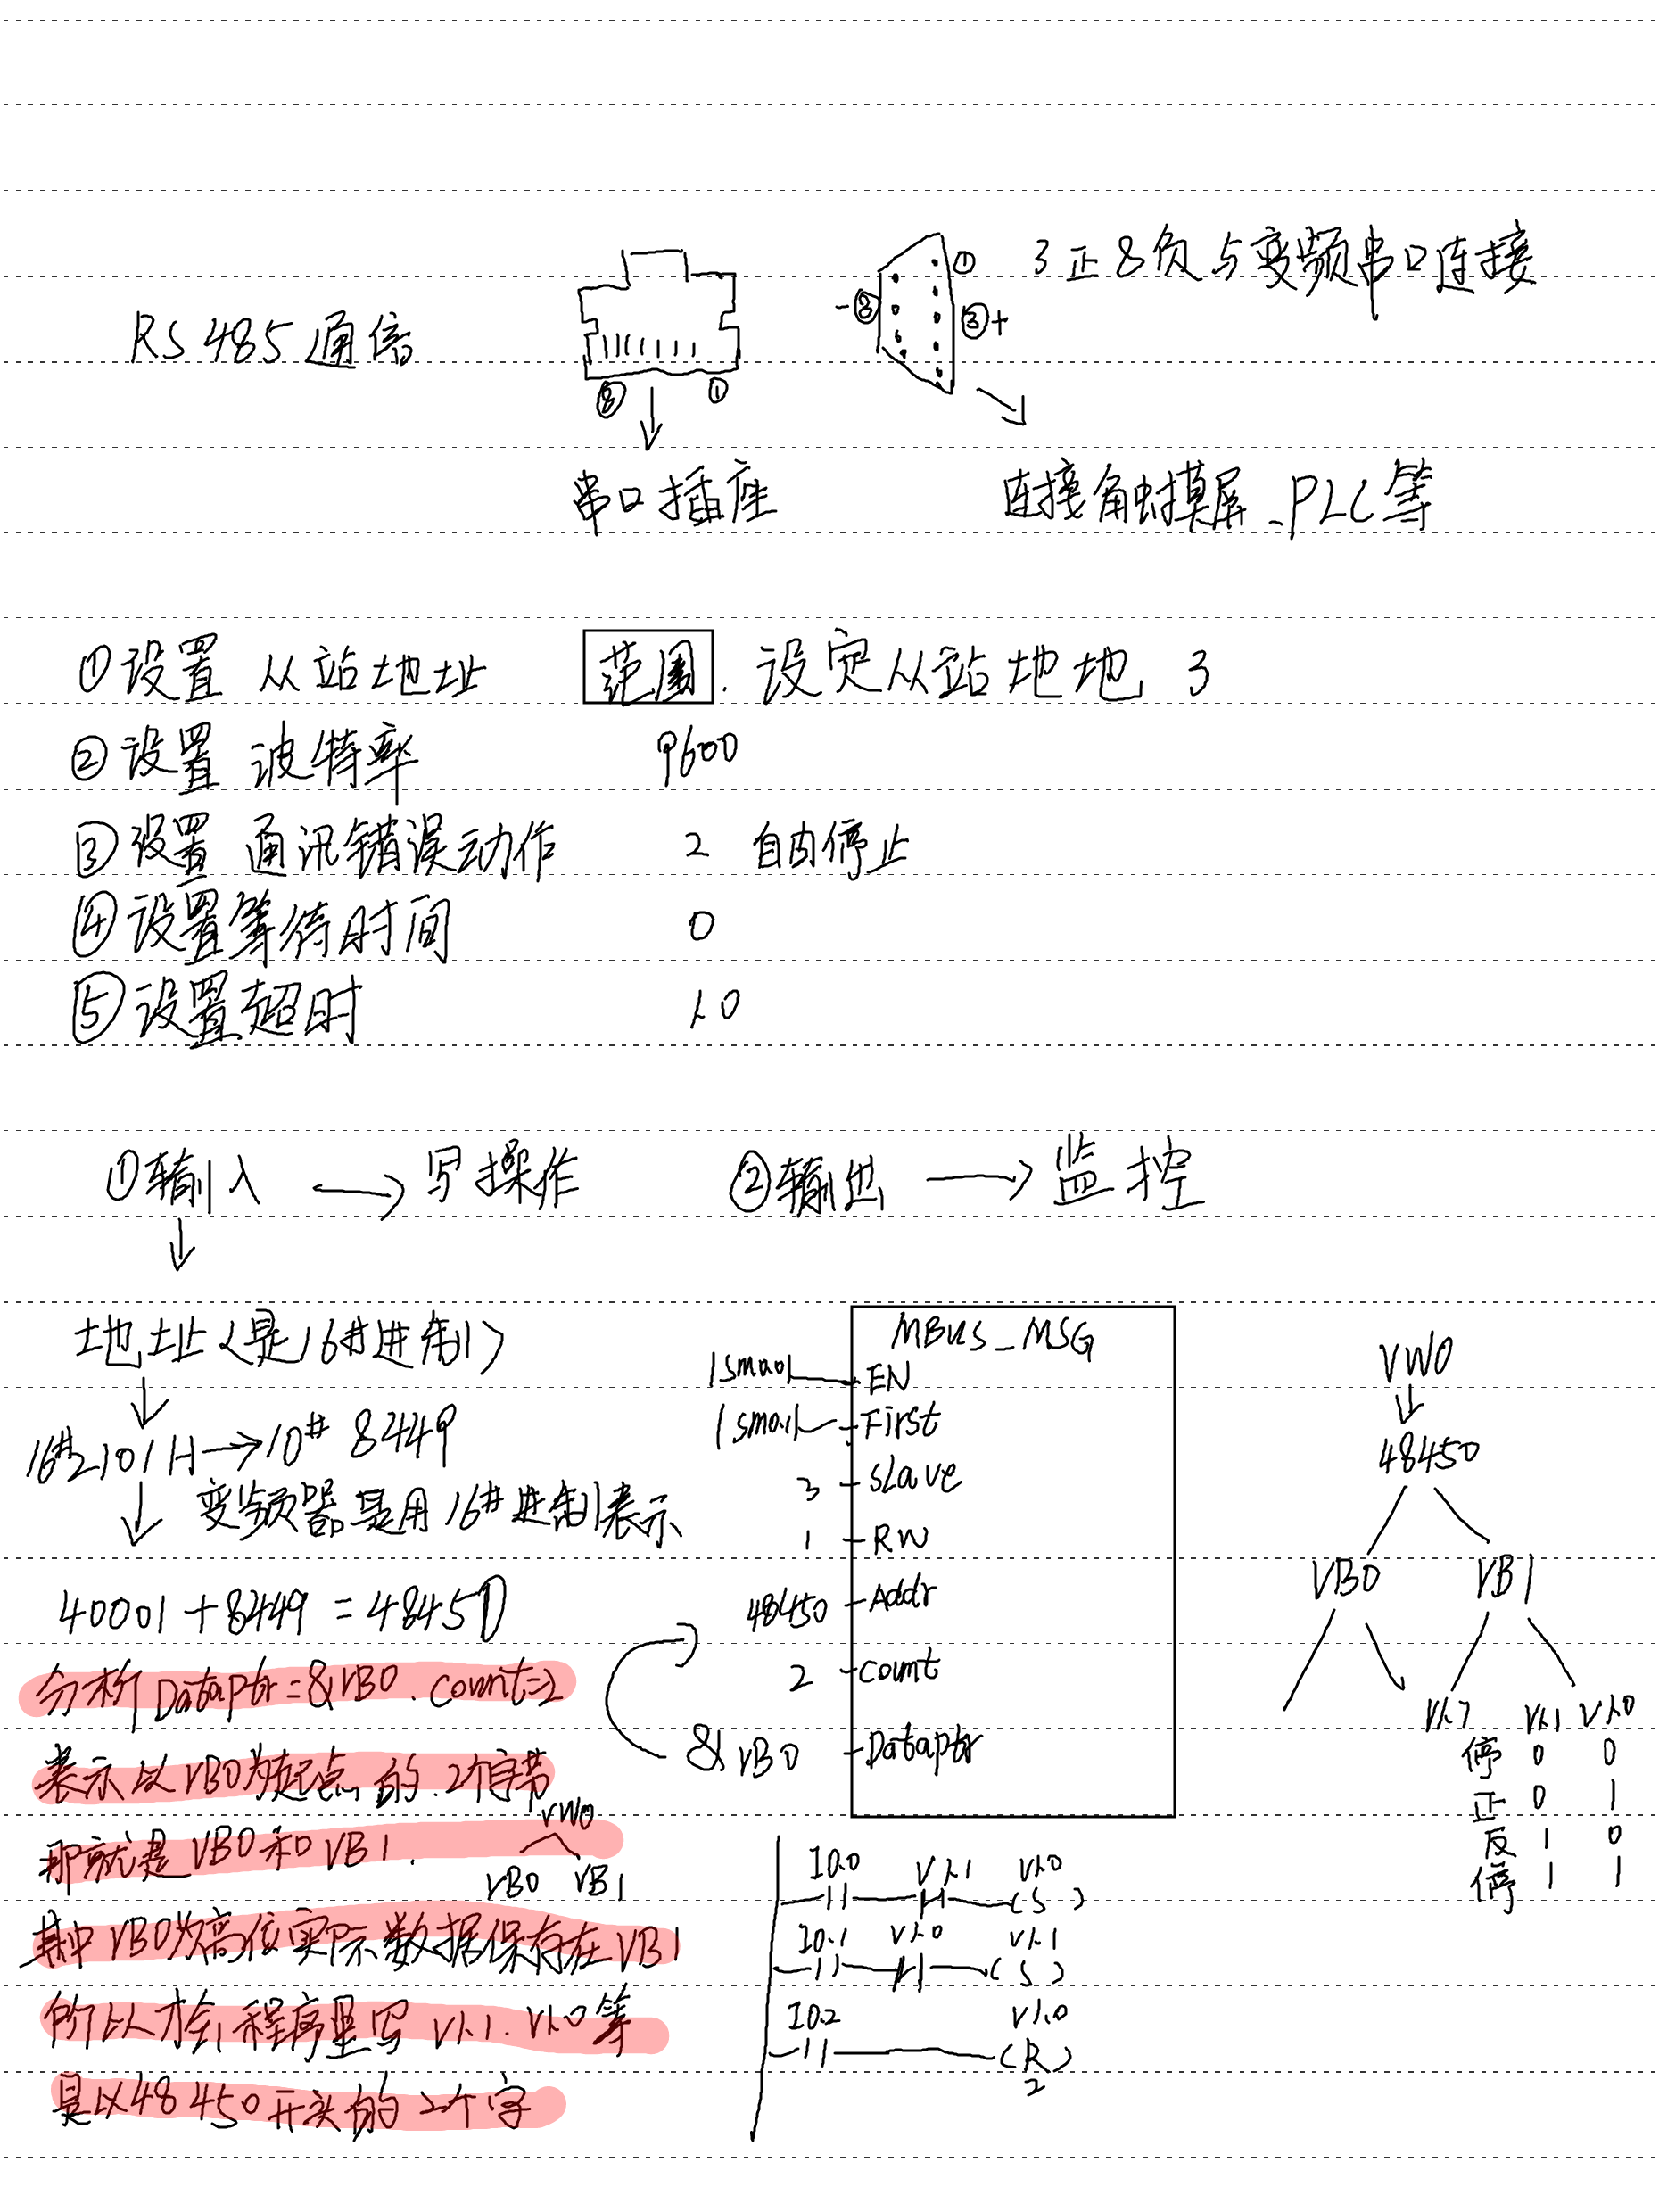 3正8负与变频串口连接
①
-⑧
③+
RS485通信
⑧ ①
串口插座
连接触摸屏、PLC等
①设置 从站地址 范围. 设定从站地地 3
②设置 波特率 9600
③设置 通讯错误动作 2 自由停止
④设置等待时间 0
⑤设置超时 1.0
①输入 → 写操作 ②输出 → 监控
↓
地址<是16#进制>
↓
16#2101H→10# 8449
↓ 变频器是用16#进制表示
40001+8449=48450
分析Dataptr=&VB0.count=2
表示以VB0为起点的.2个字节
那就是VB0和VB1.
VW0
VB0 VB1
其中VB0为高位实际数据保存在VB1
所以才会程序里写V1.1.V1.0等
是以48450开头的2个字
MBUS_MSG
SM0.0 EN
SM0.1 First
3 slave
1 RW
48450 Addr
2 count
&VB0 Dataptr
VW0
↓
48450
VB0 VB1
V1.7 V1.1 V1.0
停 0 0
正 0 1
反 1 0
停 1 1
I0.0 V1.1 V1.0
(S)
I0.1 V1.0 V1.1
(S)
I0.2 V1.0
(R)
2